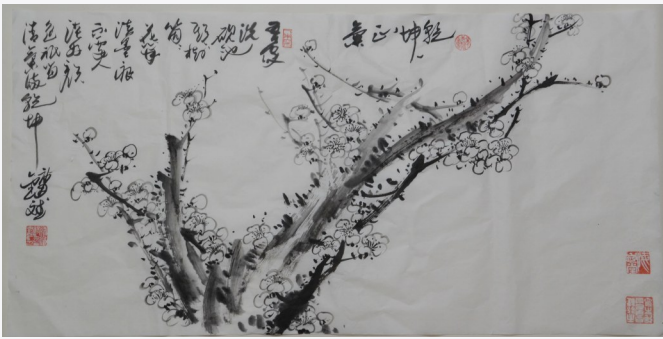 乾坤正氣
吾家
洗硯池
頭樹
箇箇
花開
淡墨痕
不要人
好顏
色祇留
清氣滿乾坤